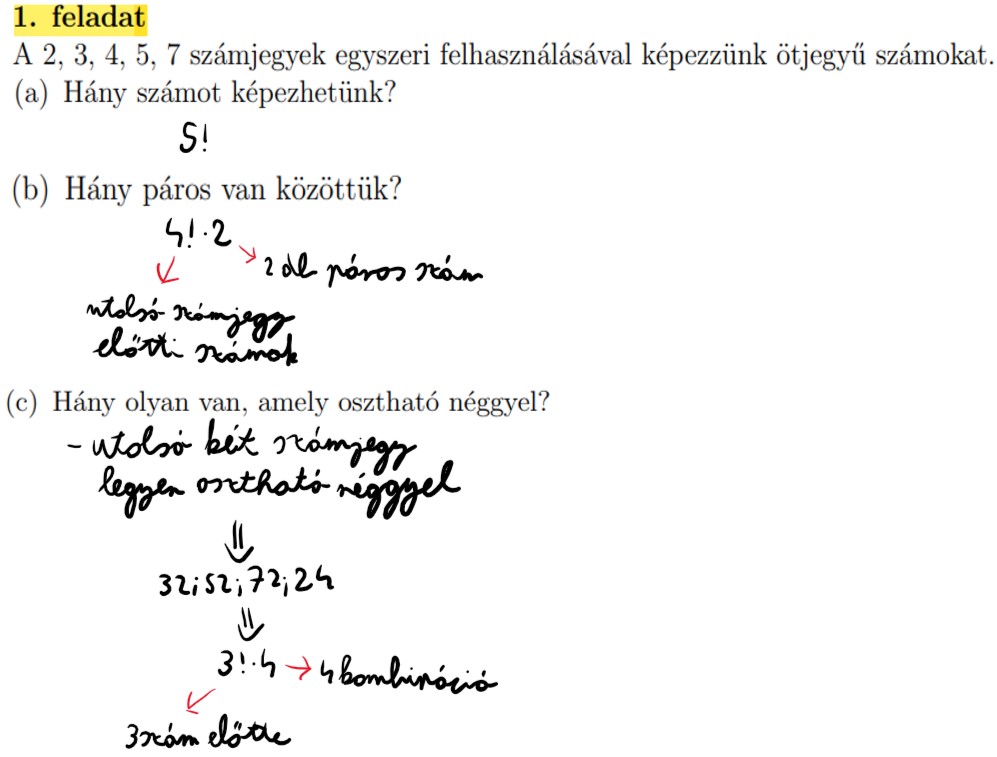 1. feladat
A 2, 3, 4, 5, 7 számjegyek egyszeri felhasználásával képezzünk ötjegyű számokat.
(a) Hány számot képezhetünk?
5!
(b) Hány páros van közöttük?
4!·2
2 db páros szám
utolsó számjegy
előtti számok
(c) Hány olyan van, amely osztható néggyel?
- utolsó két számjegy
legyen osztható néggyel
⇓
32; 52; 72; 24
⇓
3!·4 → 4 kombináció
3 szám előtte